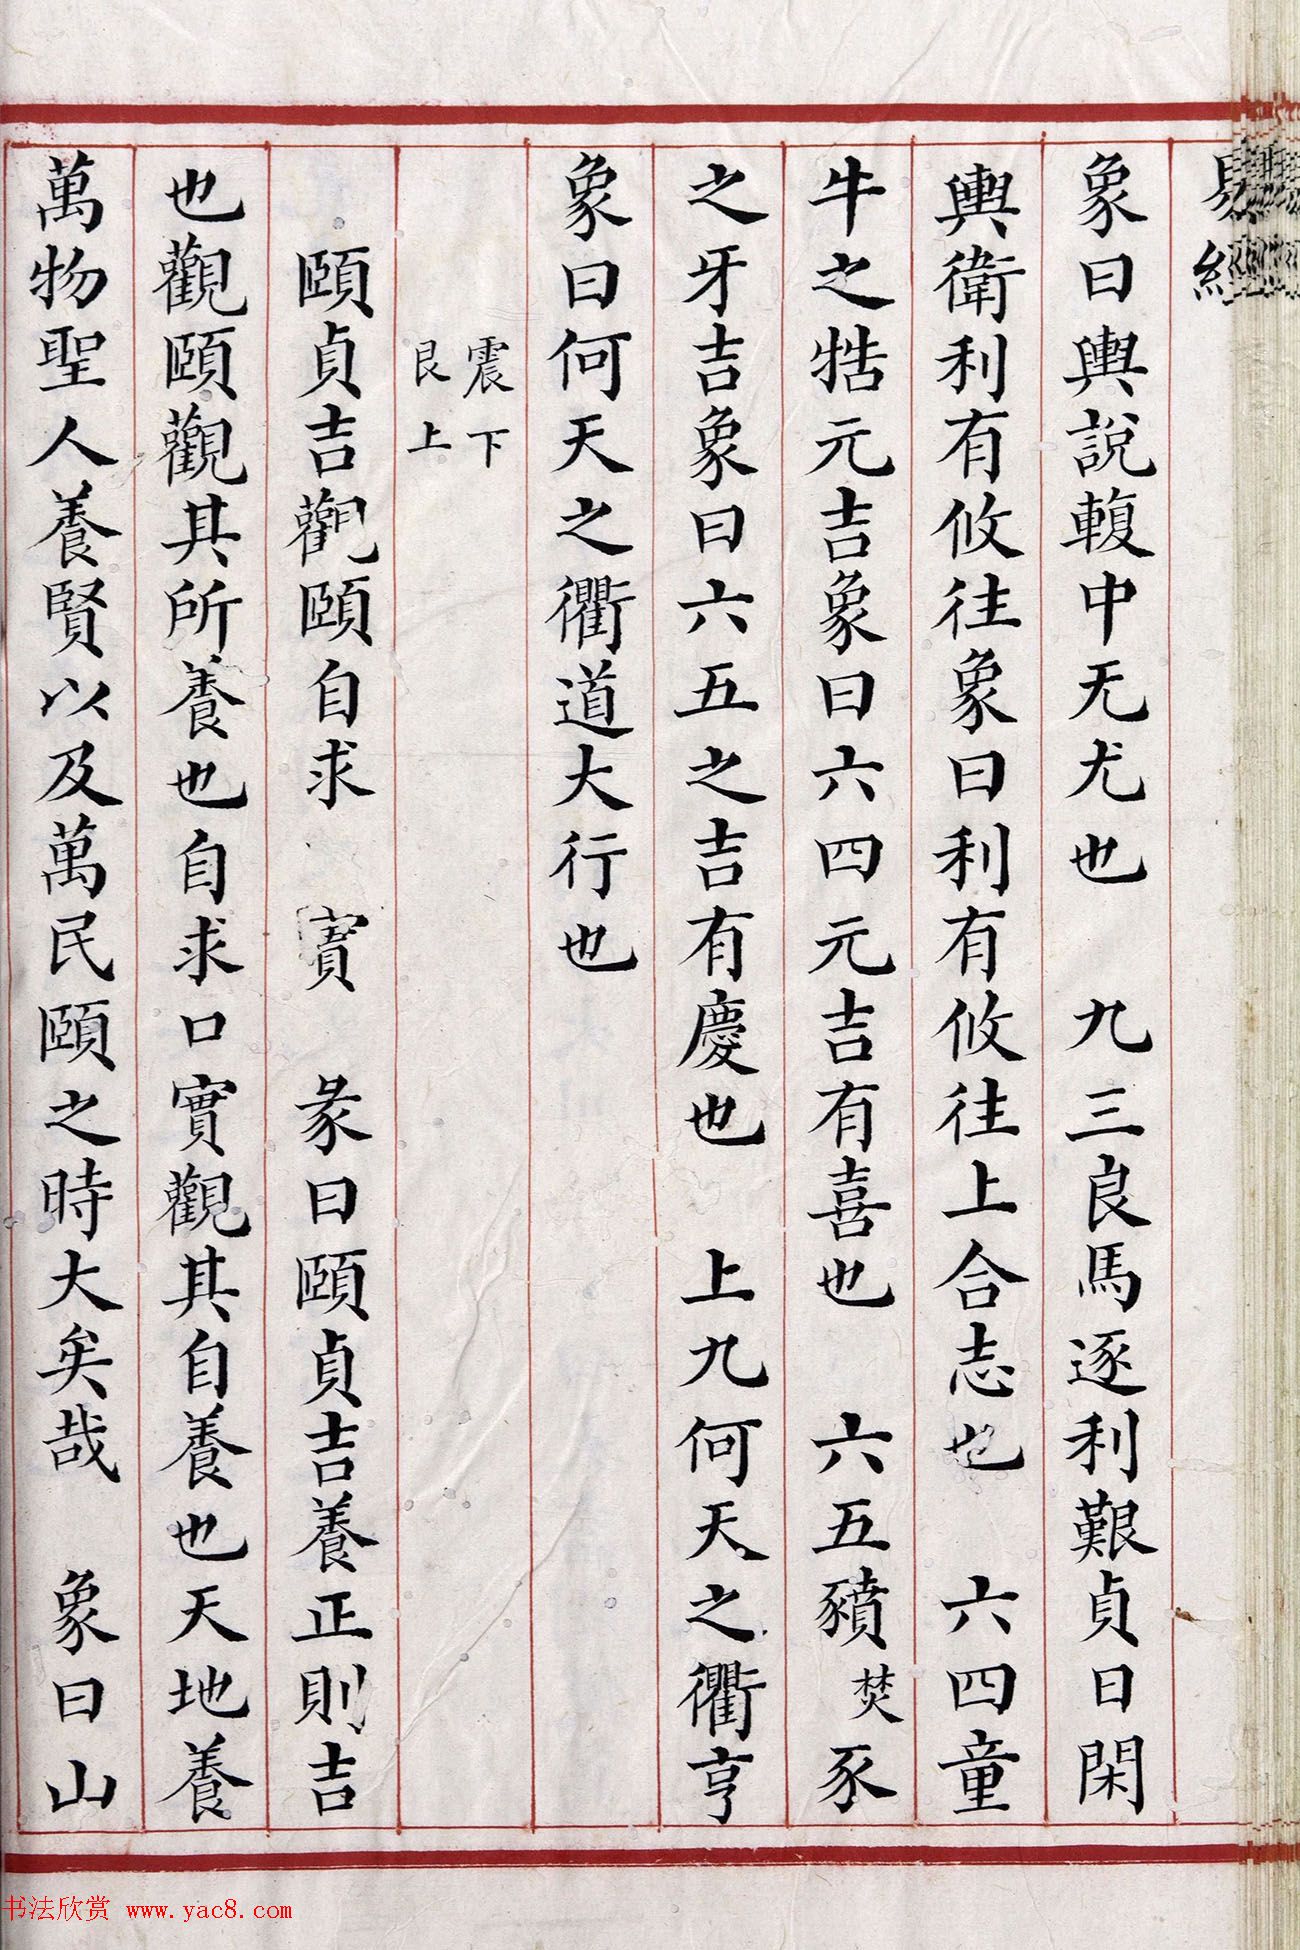 易經
象曰輿說輹中无尤也 九三良馬逐利艱貞曰閑
輿衛利有攸往象曰利有攸往上合志也 六四童
牛之牿元吉象曰六四元吉有喜也 六五豶焚豕
之牙吉象曰六五之吉有慶也 上九何天之衢亨
象曰何天之衢道大行也
震下
艮上
頤貞吉觀頤自求 實 彖曰頤貞吉養正則吉
也觀頤觀其所養也自求口實觀其自養也天地養
萬物聖人養賢以及萬民頤之時大矣哉 象曰山
书法欣赏 www.yac8.com